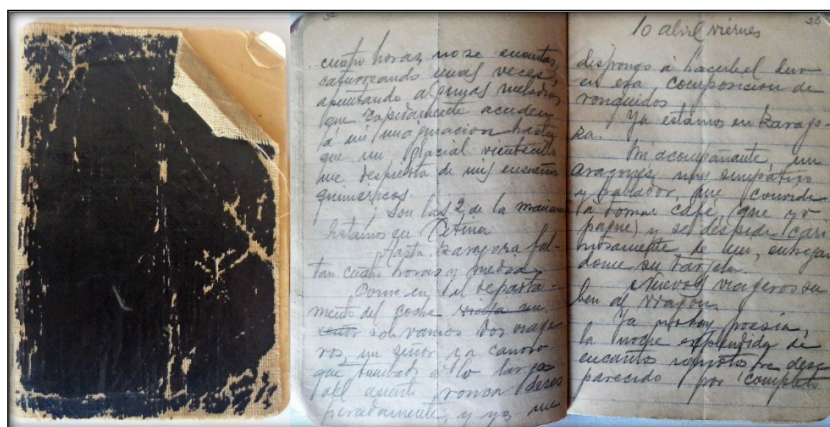 32
cuatro horas no se cuantas,
canturreando unas veces,
apuntando algunas melodias
que rapidamente acuden
á mi imaginacion hasta
que un glacial vientecillo
me despierta de mis ensueños
quimericos.
Son las 2 de la mañana
Estamos en Ketina
Hasta Zaragoza fal-
tan cuatro horas y media
Como en el departa-
mento del coche
solo vamos dos viaje-
ros, un señor ya canoso
que tumbado á lo largo
del asiento ronca deses
peradamente, y yo me
33
10 abril viernes
dispongo á hacerle el duo
en esa composicion de
ronquidos.
Ya estamos en Zarago-
za.
Mi acompañante, un
aragones muy simpatico
y hablador, me convida
á tomar café, (que yo
pagué) y se despide cari
ñosamente de mi, entregan
dome su tarjeta.
Nuevos viageros su
ben al wagon.
Ya no hay poesia,
la noche esplendida de
encantos remotos ha desa
parecido por completo